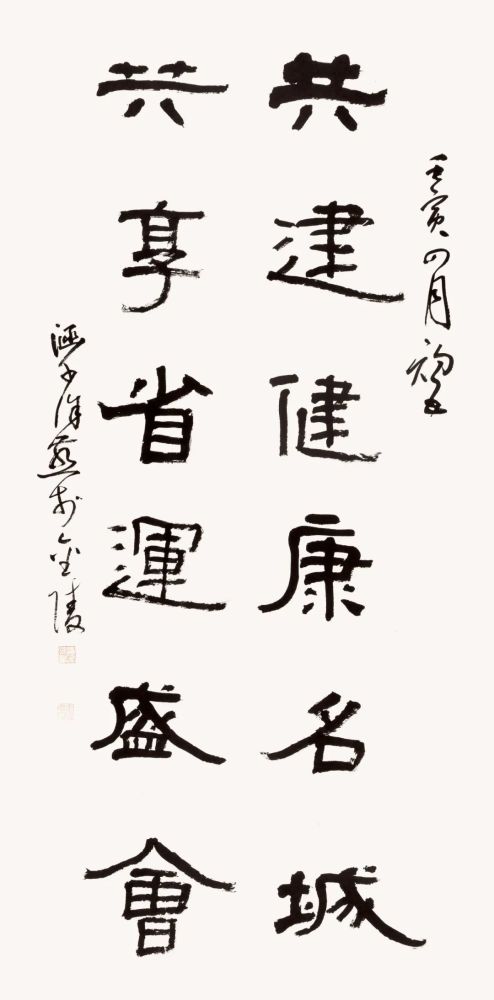 壬寅四月初五
共建健康名城
共享省運盛會
涵子徐燕於金陵